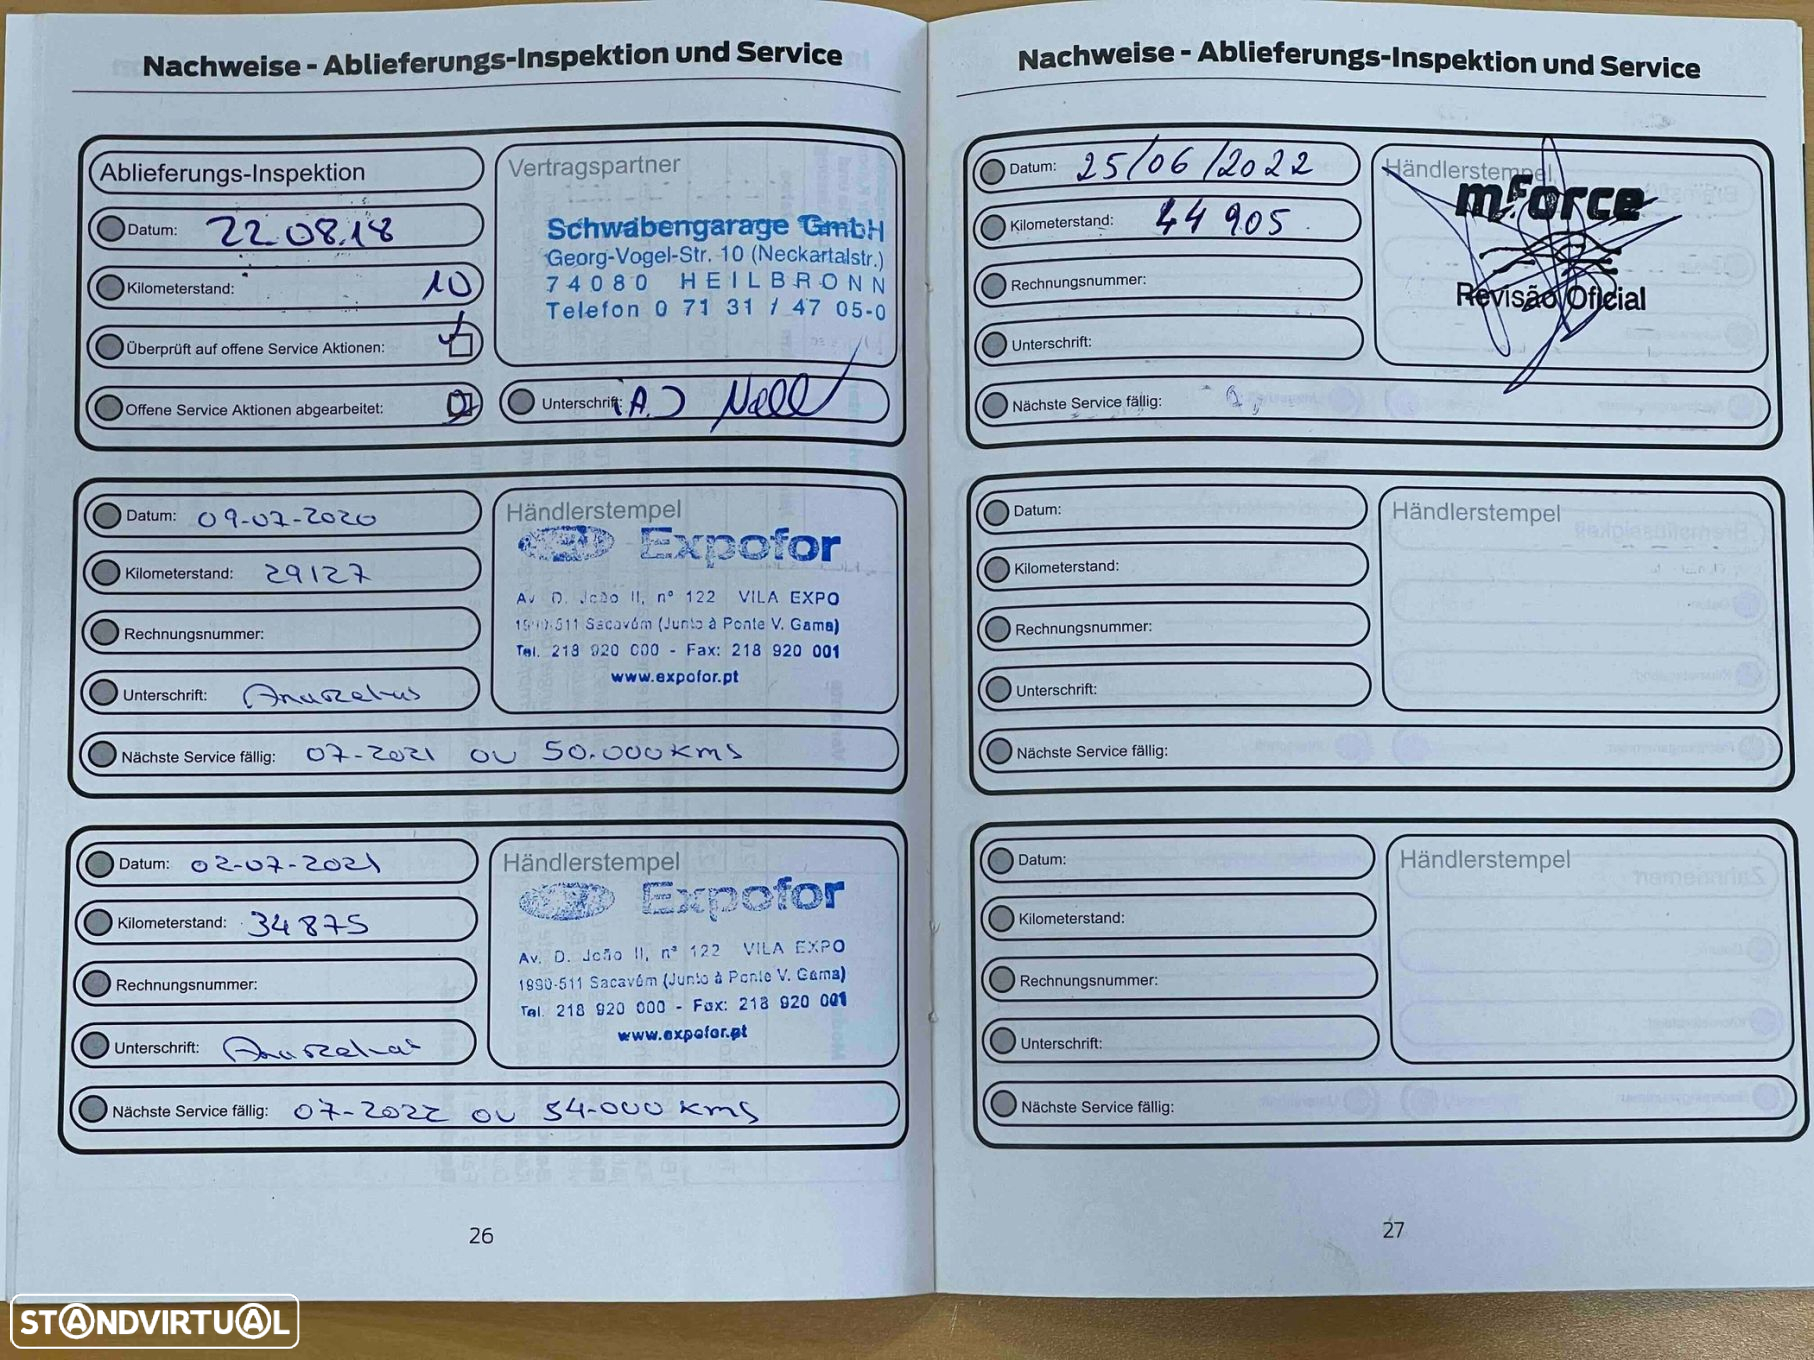 Nachweise - Ablieferungs-Inspektion und Service
Ablieferungs-Inspektion
Datum: 22.08.18
Kilometerstand: 10
Überprüft auf offene Service Aktionen:
Offene Service Aktionen abgearbeitet:
Vertragspartner
Schwabengarage GmbH
Georg-Vogel-Str. 10 (Neckartalstr.)
74080 HEILBRONN
Telefon 0 71 31 / 47 05-0
Unterschrift:
Datum: 09-07-2020
Kilometerstand: 29127
Rechnungsnummer:
Unterschrift:
Händlerstempel
Expofor
Av. D. João II, nº 122 VILA EXPO
1990-511 Sacavém (Junto à Ponte V. Gama)
Tel. 218 920 000 - Fax: 218 920 001
www.expofor.pt
Nächste Service fällig: 07-2021 ou 50.000 kms
Datum: 02-07-2021
Kilometerstand: 34875
Rechnungsnummer:
Unterschrift:
Händlerstempel
Expofor
Av. D. João II, nº 122 VILA EXPO
1990-511 Sacavém (Junto à Ponte V. Gama)
Tel. 218 920 000 - Fax: 218 920 001
www.expofor.pt
Nächste Service fällig: 07-2022 ou 54-000 kms
26
Nachweise - Ablieferungs-Inspektion und Service
Datum: 25/06/2022
Kilometerstand: 44905
Rechnungsnummer:
Unterschrift:
Händlerstempel
mForce
Revisão Oficial
Nächste Service fällig:
Datum:
Kilometerstand:
Rechnungsnummer:
Unterschrift:
Händlerstempel
Nächste Service fällig:
Datum:
Kilometerstand:
Rechnungsnummer:
Unterschrift:
Händlerstempel
Nächste Service fällig:
27
STANDVIRTUAL